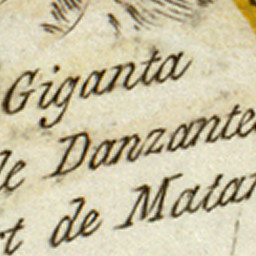 Giganta
le Danzante
t de Matar